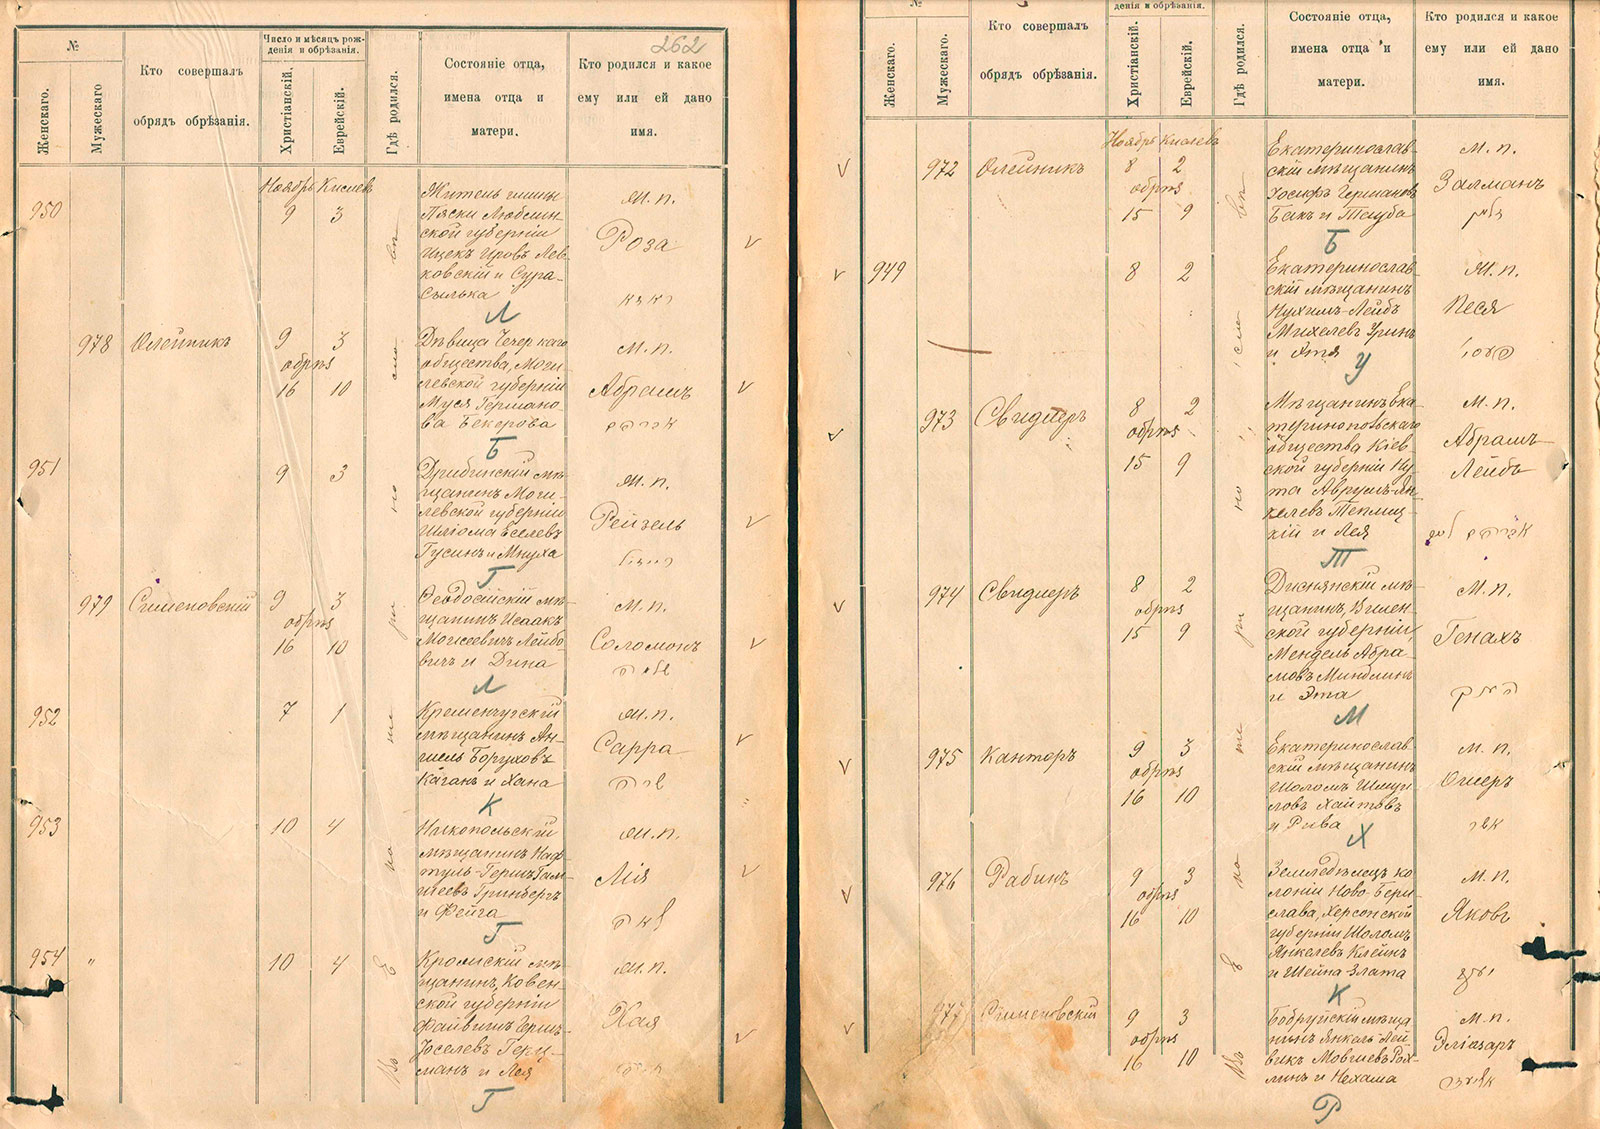 262
№
Женскаго.
Мужескаго
Кто совершалъ
обрядъ обрѣзанія.
Число и мѣсяцъ рож-
денія и обрѣзанія.
Христіанскій.
Еврейскій.
Гдѣ родился.
Состояніе отца,
имена отца и
матери.
Кто родился и какое
ему или ей дано
имя.
Ноябрь Кислевъ
950
9 3
Житель
Пяски Люблин
ской губерніи
Ицекъ Лев
ковскій и Сура-
Сылька
м. п.
Роза
Л
978
Олейникъ
9 3
обрѣз
16 10
Дѣвица
общества, Моги
левской губерніи
Муся Германо-
ва Бекерова
м. п.
Абрамъ
Б
951
9 3
Дрибинскій мѣ
щанинъ Моги-
левской губерніи
Шліома Еселевъ
Гусинъ и Мнуха
м. п.
Рейзель
Г
979
Сименовскій
9 3
обрѣз
16 10
Феодосійскій мѣ
щанинъ Исаакъ
Моисеевичъ Лейбо
вичъ и Дина
м. п.
Соломонъ
Л
952
7 1
Кременчугскій
мѣщанинъ Ан-
гиель Боруховъ
Каганъ и Хана
м. п.
Сарра
שרה
К
953
10 4
Никопольскій
мѣщанинъ Наф
туль-Гершъ
Гринбергъ
и Фейга
м. п.
Лія
לאה
Г
954 "
10 4
мѣ
щанинъ, Ковен
ской губерніи
Файвишъ Гершъ-
Іоселевъ Герц-
манъ и Лея
м. п.
Хая
חיה
Г
Въ Е ка те ри но сла вѣ
№
Женскаго.
Мужескаго.
Кто совершалъ
обрядъ обрѣзанія.
денія и обрѣзанія.
Христіанскій.
Еврейскій.
Гдѣ родился.
Состояніе отца,
имена отца и
матери.
Кто родился и какое
ему или ей дано
имя.
Ноябрь Кислевъ
972
Олейникъ
8 2
обрѣз
15 9
Екатеринослав-
скій мѣщанинъ
Іосифъ Германовъ
Бакъ и Тауба
м. п.
Залманъ
זלמן
Б
949
8 2
Екатеринослав-
скій мѣщанинъ
Нухимъ-Лейбъ
Михелевъ
и
м. п.
Песя
פעסי
У
973
Свидлеръ
8 2
обрѣз
15 9
Мѣщанинъ Ека-
теринопольскаго
общества Кіев-
ской губерніи Ну
та Аврумъ-Ян
келевъ Теплиц-
кій и Лея
м. п.
Абрамъ
Лейбъ
אברהם ליב
Т
974
Свидлеръ
8 2
обрѣз
15 9
Дисненскій мѣ-
щанинъ, Вилен-
ской губерніи,
Мендель Абра-
мовъ Миндлинъ
и Эта
м. п.
Генахъ
М
975
Канторъ
9 3
обрѣз
16 10
Екатеринослав-
скій мѣщанинъ
Шоломъ Шмуи-
ловъ Хаитовъ
и Рива
м. п.
Ошеръ
אשר
Х
976
Рабинъ
9 3
обрѣз
16 10
Земледѣлецъ ко
лоніи Ново-Бери
слава, Херсонской
губерніи Шоломъ
Янкелевъ Клейнъ
и Шейна Злата
м. п.
Яковъ
יעקב
К
977
Сименовскій
9 3
обрѣз
16 10
Бобруйскій мѣща
нинъ Янкель Лей-
викъ Мовшевъ Рох-
линъ и Нехама
м. п.
Эліазаръ
Р
Въ Е ка те ри но сла вѣ